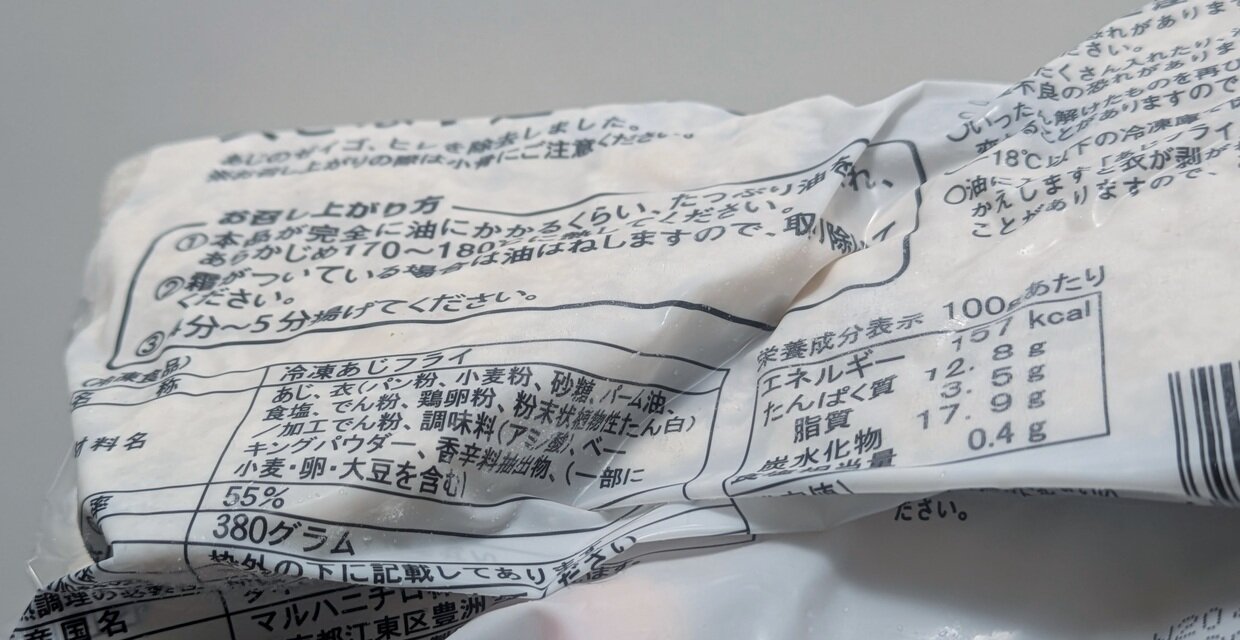 あじのゼイゴ、ヒレを除去しました。
お召し上がりの際は小骨にご注意ください。
お召し上がり方
①本品が完全に油にかかるくらい、たっぷり油
あらかじめ170～180 に熱してください。
②霜がついている場合は油はねしますので、取り除い
ください。
③4分～5分揚げてください。
(冷凍食品)
名 称
冷凍あじフライ
材料名
あじ、衣(パン粉、小麦粉、砂糖、パーム油、
食塩、でん粉、鶏卵粉、粉末状植物性たん白)
／加工でん粉、調味料(アミノ酸)、ベー
キングパウダー、香辛料抽出物、(一部に
小麦・卵・大豆を含む)
率
55%
380グラム
枠外の下に記載してあります
熱調理の必要性
産国名
マルハニチロ
京都江東区豊洲
栄養成分表示 100gあたり
エネルギー 157 kcal
たんぱく質 12. 8 g
脂質 3. 5 g
炭水化物 17. 9 g
食塩相当量 0.4 g
ださい。
れがありま
さい。
たくさん入れたり、
不良の恐れがありま
○いったん解けたものを再び
ることがありますので
-18℃以下の冷凍庫
○油に 「あじフライ
かえしますと衣が剥が
ことがありますので、